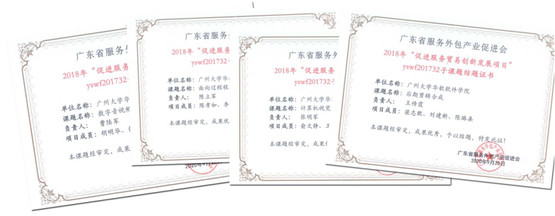 广东省服务外包产业促进会
2018年“促进服务
yswf201732
单位名称：广州大学华
课题名称：数字音频
负责人：曹陆军
项目成员：胡明华、
本课题经审定，成果
广东省服务外包产业促进会
2018年“促进服务
yswf201732-
单位名称：广州大学华
课题名称：面向过程
负责人：陈立军
项目成员：陈青如、
本课题经审定，成果优
2020年1月
广东省服务外包产业促进会
2018年“促进服务
yswf201732-
单位名称：广州大学华
课题名称：计算机视觉
负责人：张明军
项目成员：俞文静、
本课题经审定，成果
广东省服务外包产业促进会
2018年“促进服务贸易创新发展项目”
yswf201732子课题结题证书
单位名称：广州大学华软软件学院
课题名称：后期剪辑合成
负责人：王传霞
项目成员：梁志敏、刘建新、陈路蓥
本课题经审定，成果优秀，予以结题，特发此证！
广东省服务外包产业促进会
2020年1月20日